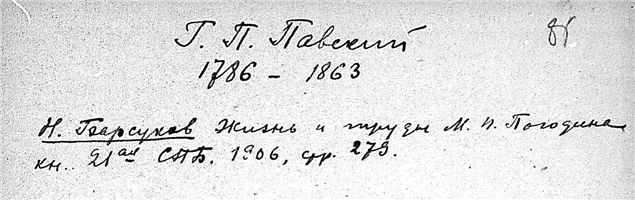 Г. П. Павский
1786 – 1863
Н. Барсуков Жизнь и труды М. П. Погодина
кн. 21ая СПБ. 1906, стр. 273.